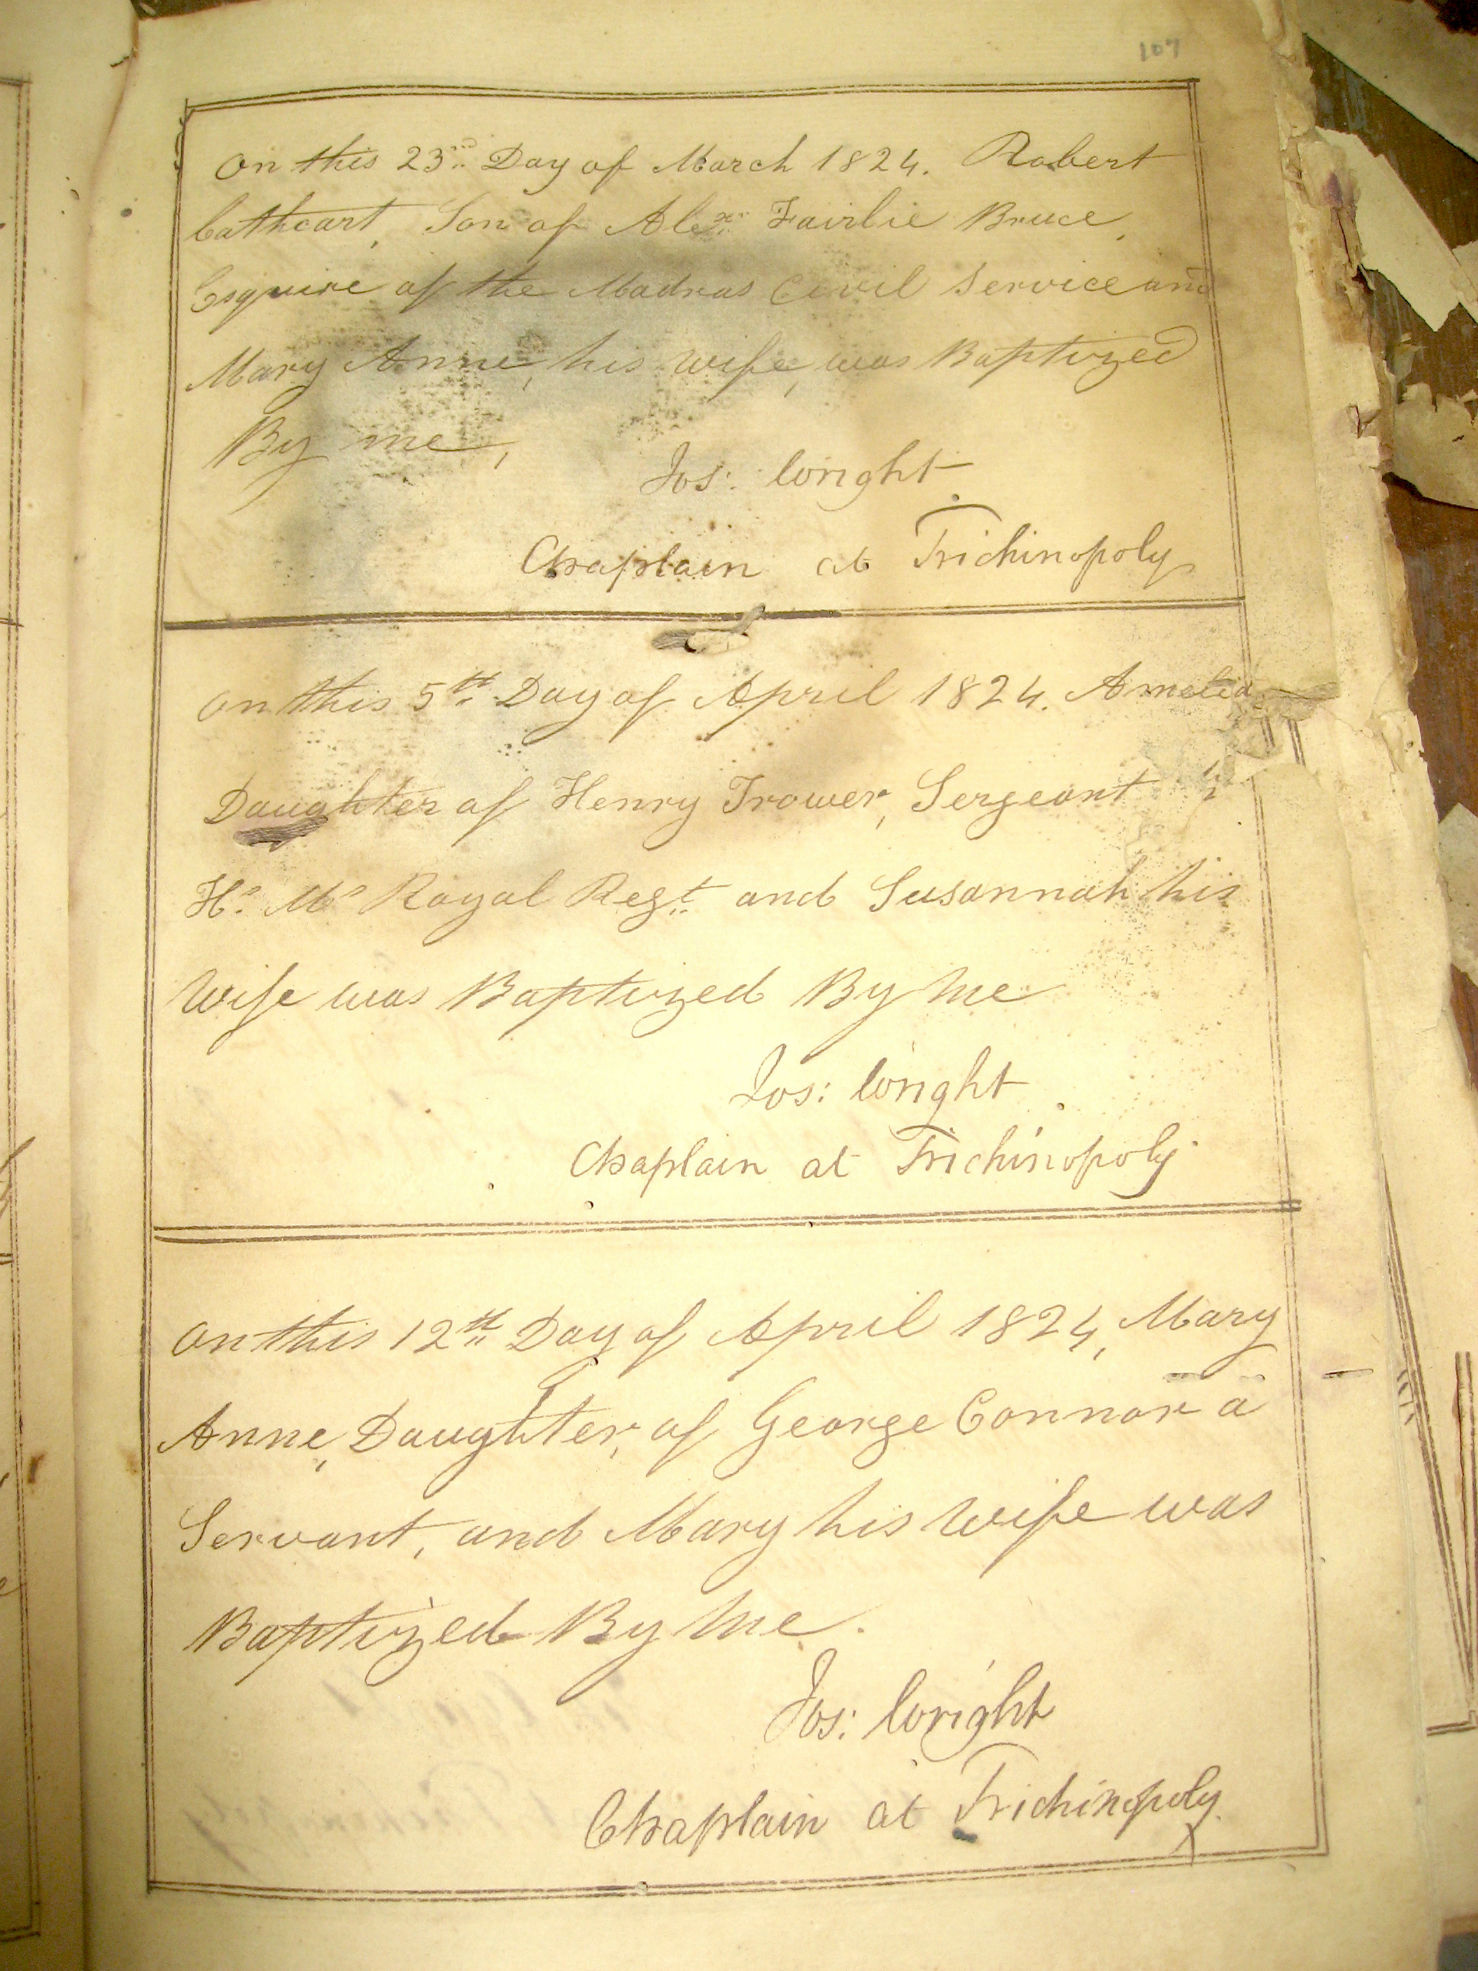 107
On this 23rd Day of March 1824. Robert
Cathcart, Son of Alexr Fairlie Bruce,
Esquire of the Madras Civil Service and
Mary Anne, his wife, was Baptized
By me,
Jos: Wright
Chaplain at Trichinopoly
On this 5th Day of April 1824. Amelia
Daughter of Henry Trower, Sergeant
Hs Ms Royal Regt and Susannah his
Wife was Baptized By Me
Jos: Wright
Chaplain at Trichinopoly
On this 12th Day of April 1824, Mary
Anne, Daughter, of George Connor a
Servant, and Mary his Wife was
Baptized By Me.
Jos: Wright
Chaplain at Trichinopoly